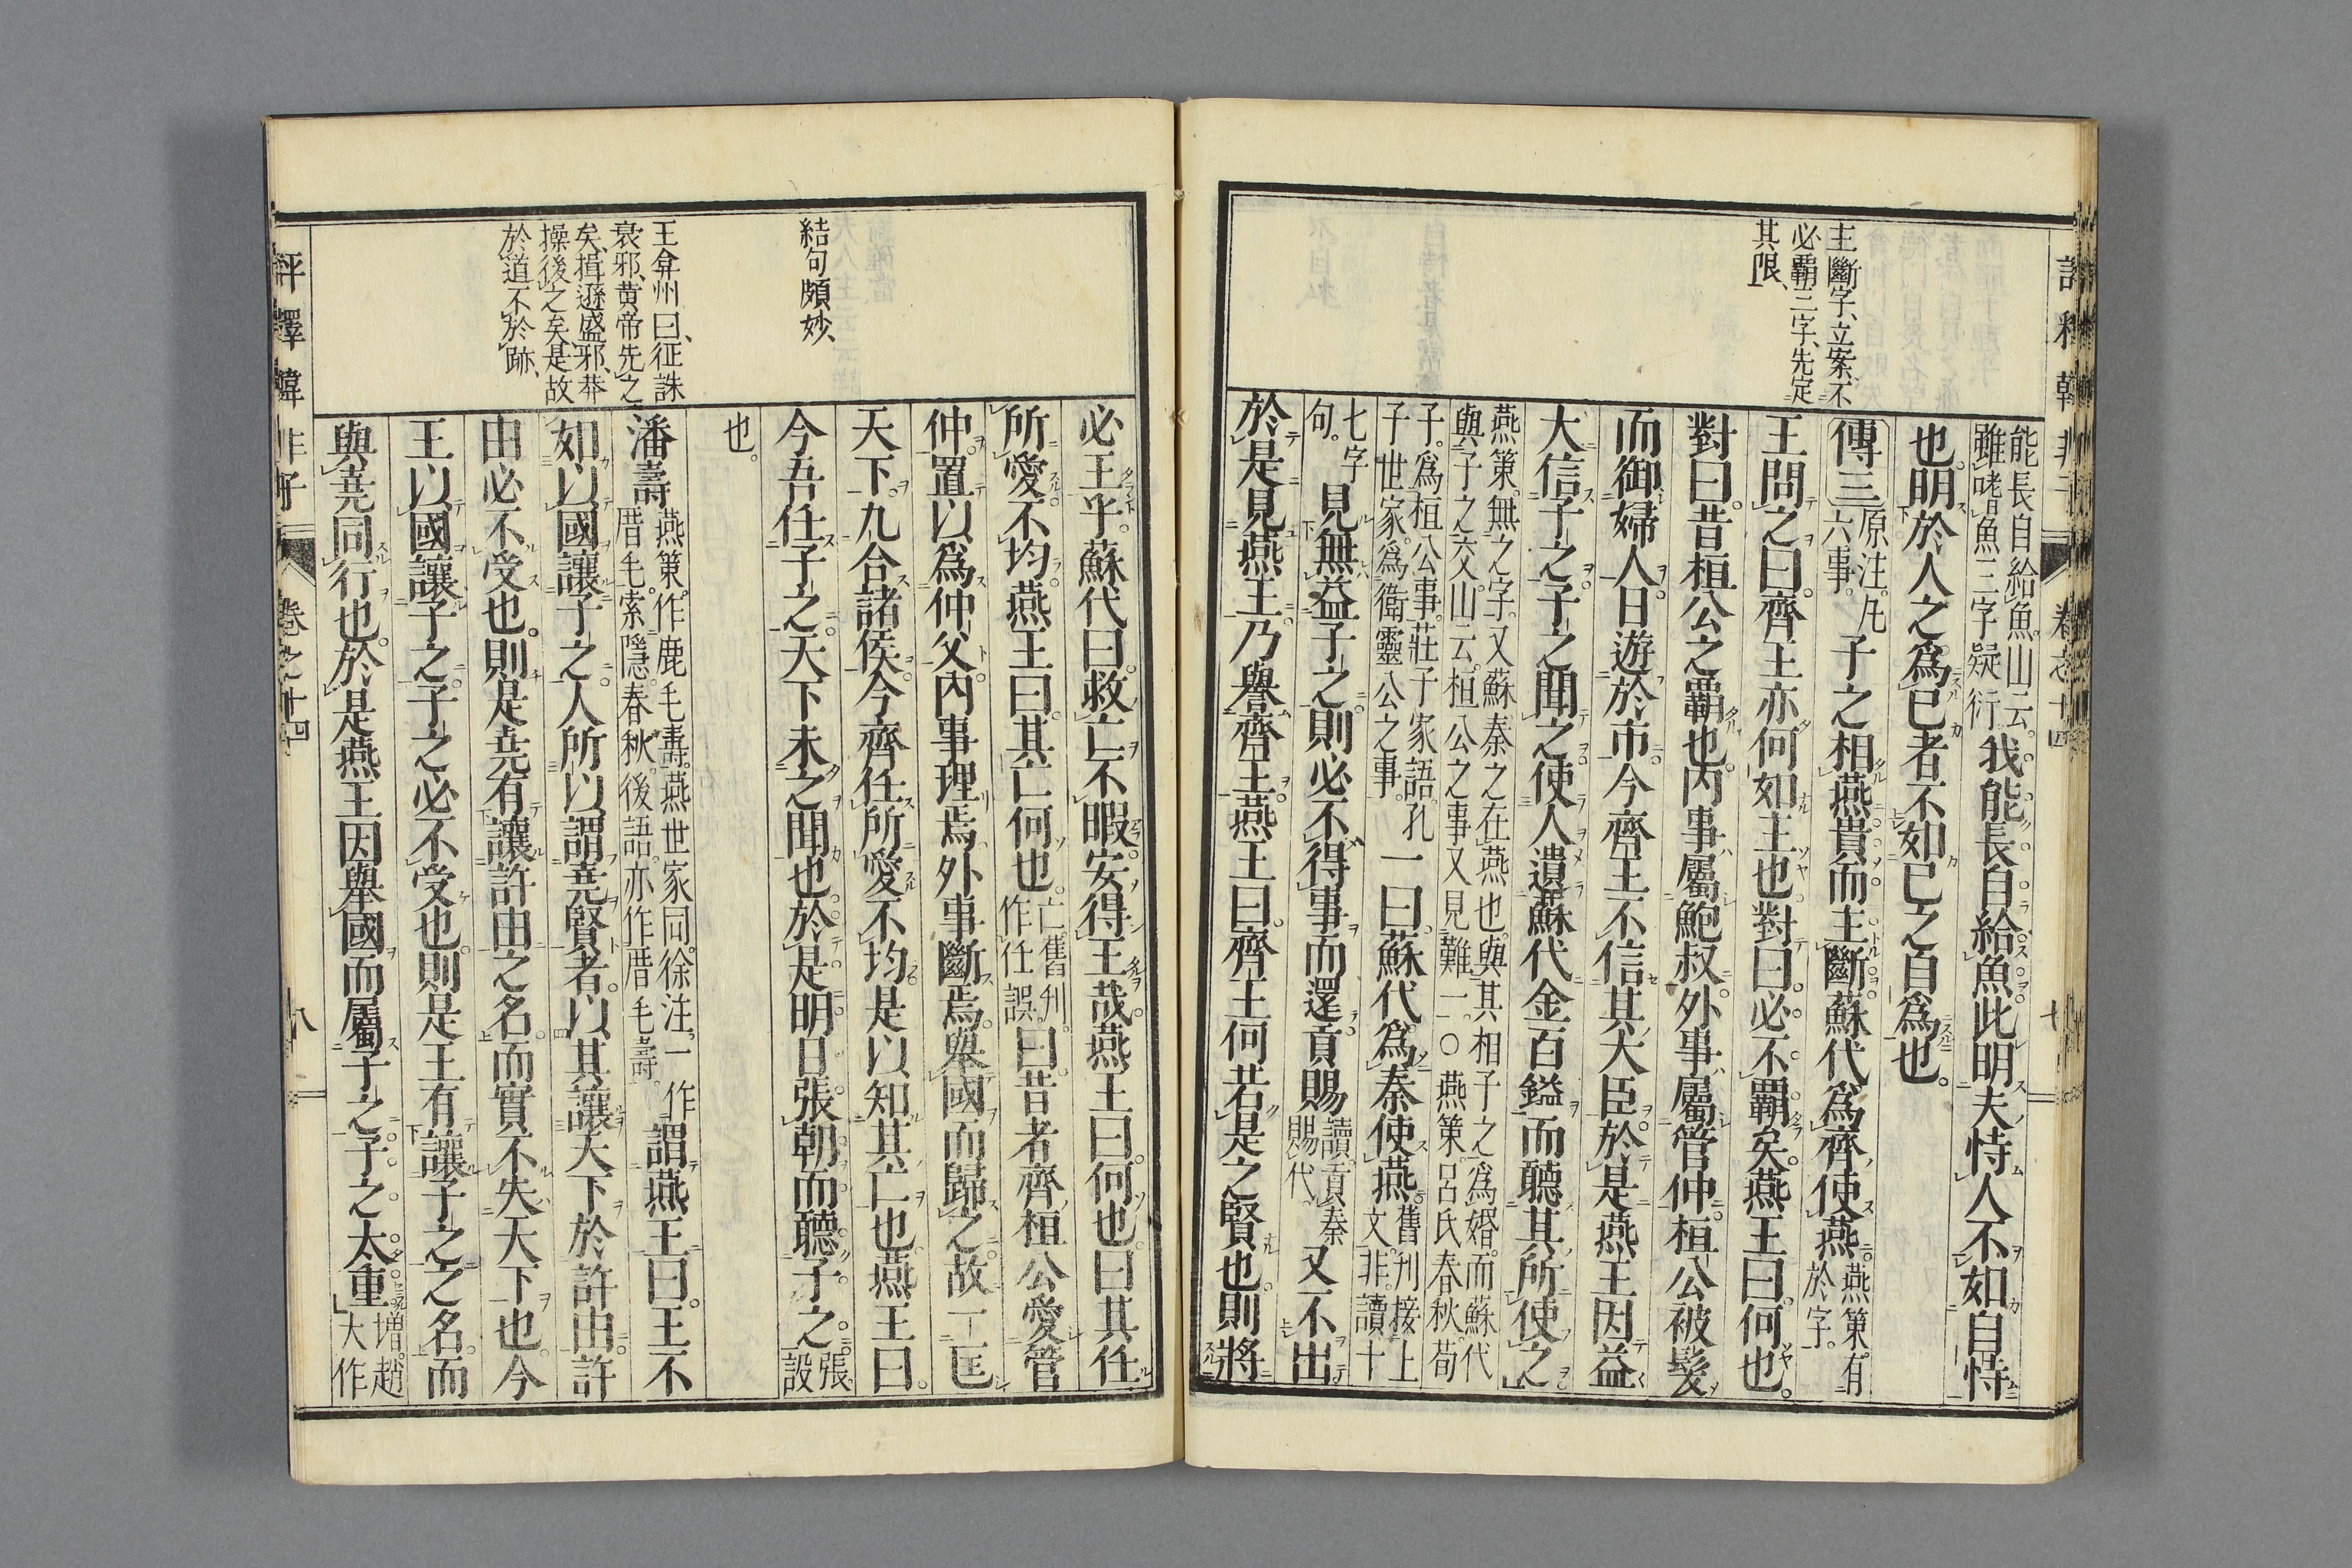 主斷字、立案、不
必霸三字、先定
其限、
能長自給魚。山云。
雖嗜魚三字疑衍
我能長自給魚此明夫恃人不如自恃
也明於人之爲己者不如己之自爲也。
傳三
原注。凡
六事。
子之相燕貴而主斷蘇代爲齊使燕
燕策有
於字。
王問之曰。齊王亦何如王也對曰。必不霸矣燕王曰。何也。
對曰。昔桓公之霸也內事屬鮑叔外事屬管仲桓公被髮
而御婦人日遊於市今齊王不信其大臣於是燕王因益
大信子之子之聞之使人遺蘇代金百鎰而聽其所使之
燕策。無之字。又蘇秦之在燕也。與其相子之爲婚。而蘇代
與子之交。山云。桓公之事又見難一。○燕策。呂氏春秋。荀
子。爲桓公事。莊子家語。孔
子世家。爲衛靈公之事。
一曰。蘇代爲秦使燕
舊刊接上
文。非。讀十
七字
句。
見無益子之則必不得事而還貢賜
讀貢秦
賜代。
又不出
於是見燕王乃譽齊王燕王曰。齊王何若是之賢也則將
卷之十四
七
必王乎。蘇代曰。救亡不暇安得王哉燕王曰。何也曰其任
所愛不均燕王曰。其亡何也。
亡舊刊。
作任誤。
曰。昔者齊桓公愛管
仲置以爲仲父內事理焉外事斷焉擧國而歸之故一匡
天下九合諸侯今齊任所愛不均是以知其亡也燕王曰。
今吾任子之天下未之聞也於是明日張朝而聽子之。
張。
設
也。
潘壽
燕策。作鹿毛壽。燕世家同。徐注。一作
厝毛。索隱。春秋後語。亦作厝毛壽。
謂燕王曰。王不
如以國讓子之人所以謂堯賢者。以其讓天下於許由許
由必不受也。則是堯有讓許由之名而實不失天下也今
王以國讓子之子之必不受也則是王有讓子之之名而
與堯同行也。於是燕王因擧國而屬子之子之太重
増。趙
大作
結句頗妙、
王弇州曰、征誅
衰邪、黃帝先之
矣、揖遜盛邪、莽
操後之矣是故
於道不於跡、
評釋韓非子
卷之十四
八